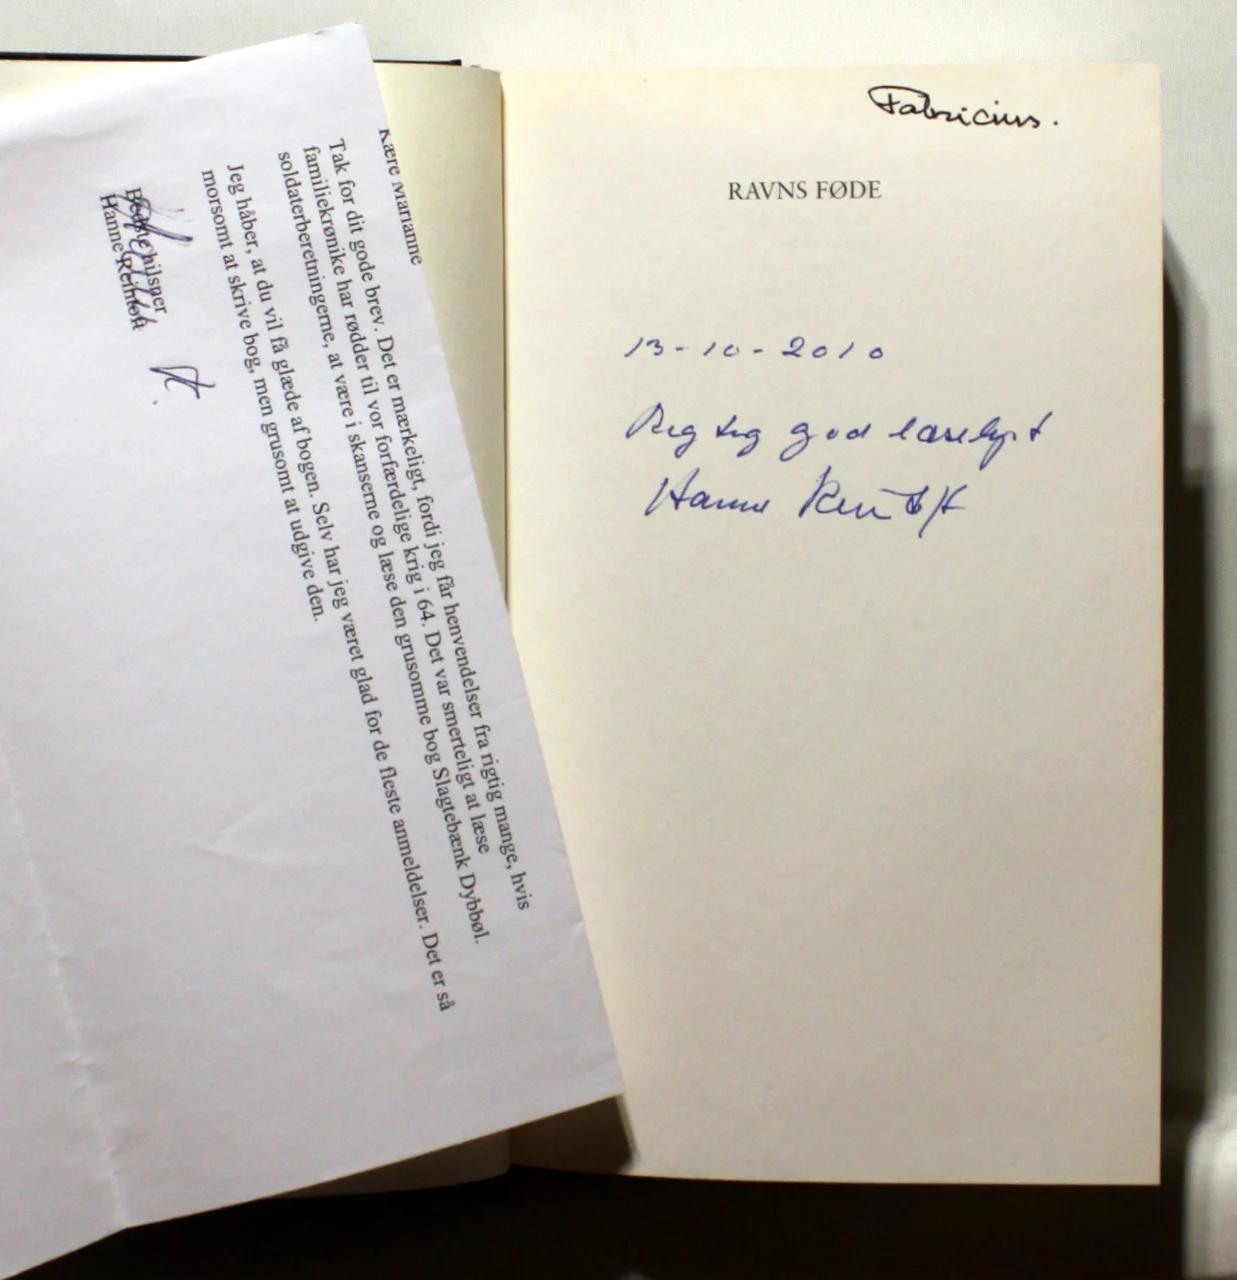 Kære Marianne
Tak for dit gode brev. Det er mærkeligt, fordi jeg får henvendelser fra rigtig mange, hvis
familiekrønike har rødder til vor forfærdelige krig i 64. Det var smerteligt at læse
soldaterberetningerne, at være i skanserne og læse den grusomme bog Slagtebænk Dybbøl.
Jeg håber, at du vil få glæde af bogen. Selv har jeg været glad for de fleste anmeldelser. Det er så
morsomt at skrive bog, men grusomt at udgive den.
hilsner
Hanne Reintoft
Fabricius.
RAVNS FØDE
13-10-2010
Rigtig god læselyst
Hanne Reintoft